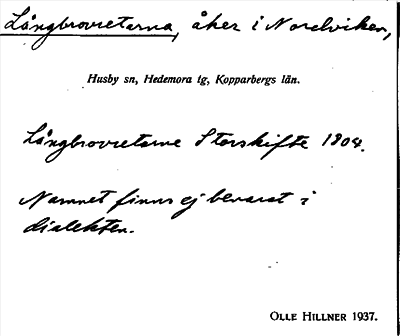 Långbrovretarna, åker i Nordviken,
Husby sn, Hedemora tg, Kopparbergs län.
Långbrovretarne Storskifte 1804.
Namnet finns ej bevarat i
dialekten.
OLLE HILLNER 1937.